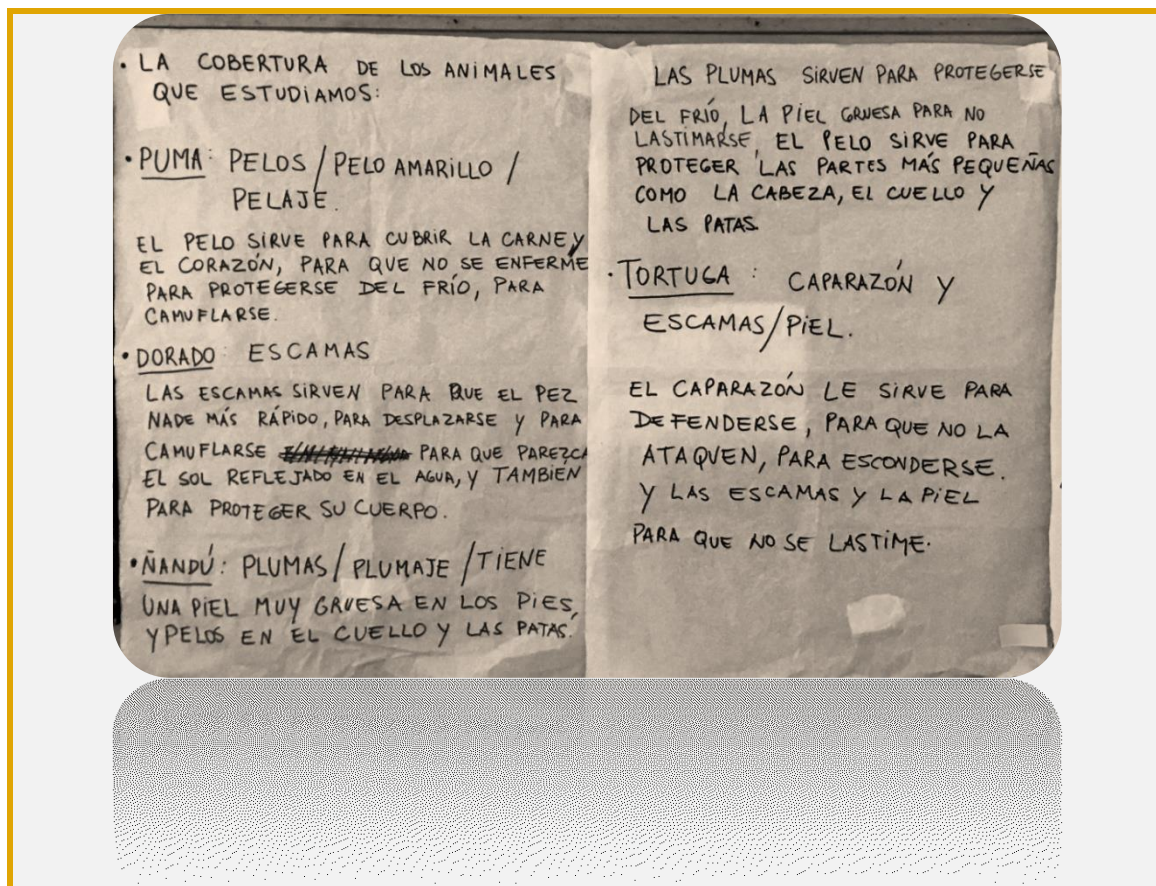 • LA COBERTURA DE LOS ANIMALES
QUE ESTUDIAMOS:
• PUMA: PELOS / PELO AMARILLO /
PELAJE.
EL PELO SIRVE PARA CUBRIR LA CARNE Y
EL CORAZÓN, PARA QUE NO SE ENFERME
PARA PROTEGERSE DEL FRÍO, PARA
CAMUFLARSE.
• DORADO: ESCAMAS
LAS ESCAMAS SIRVEN PARA QUE EL PEZ
NADE MÁS RÁPIDO, PARA DESPLAZARSE Y PARA
CAMUFLARSE PARA QUE PAREZCA
EL SOL REFLEJADO EN EL AGUA, Y TAMBIEN
PARA PROTEGER SU CUERPO.
• ÑANDÚ: PLUMAS / PLUMAJE / TIENE
UNA PIEL MUY GRUESA EN LOS PIES,
Y PELOS EN EL CUELLO Y LAS PATAS.
LAS PLUMAS SIRVEN PARA PROTEGERSE
DEL FRÍO, LA PIEL GRUESA PARA NO
LASTIMARSE, EL PELO SIRVE PARA
PROTEGER LAS PARTES MÁS PEQUEÑAS
COMO LA CABEZA, EL CUELLO Y
LAS PATAS.
• TORTUGA: CAPARAZÓN Y
ESCAMAS/PIEL.
EL CAPARAZÓN LE SIRVE PARA
DEFENDERSE, PARA QUE NO LA
ATAQUEN, PARA ESCONDERSE.
Y LAS ESCAMAS Y LA PIEL
PARA QUE NO SE LASTIME.